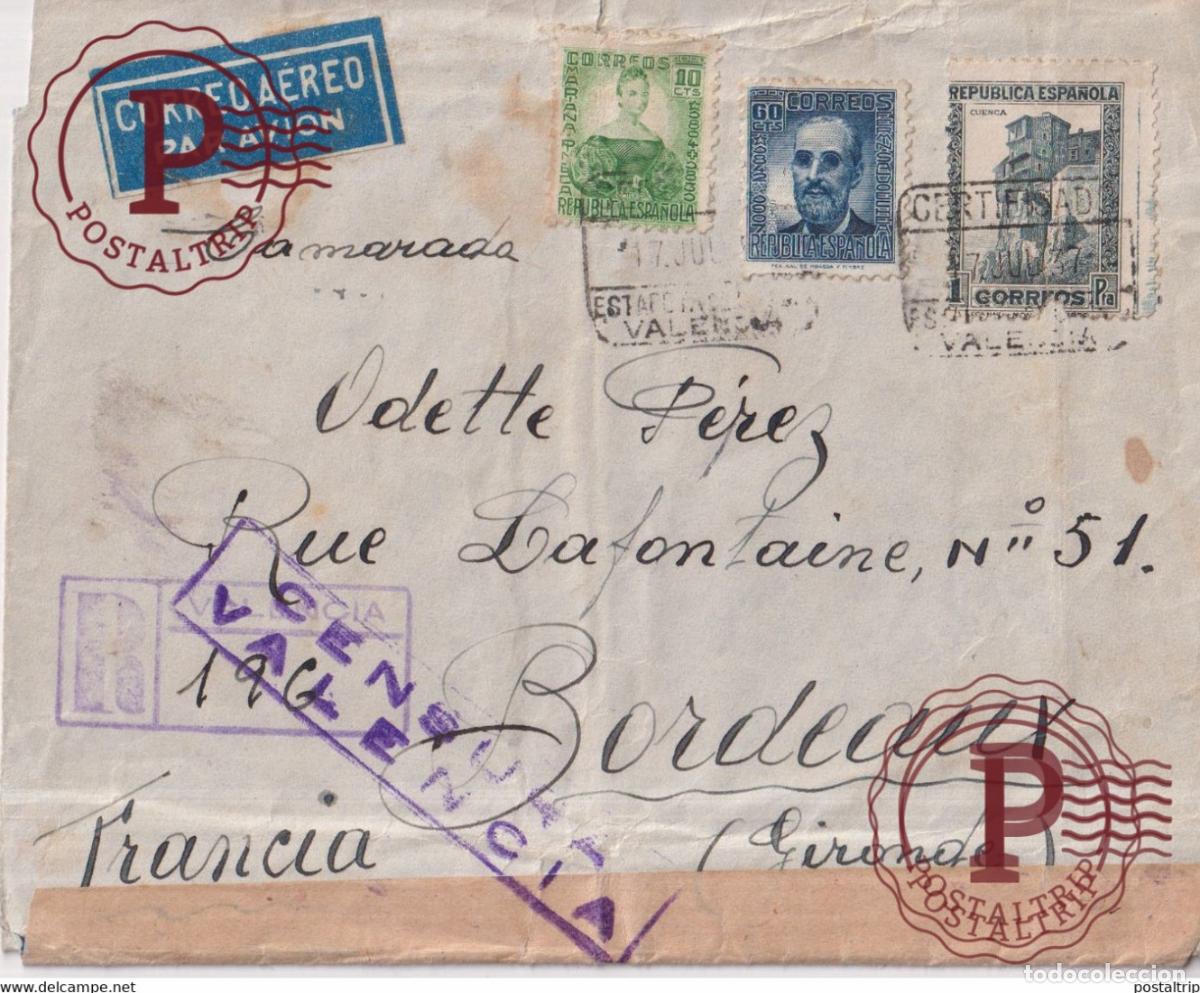 CORREO AÉREO
PAR AVION
CORREOS
10 CTS
MARIANA PINEDA
REPUBLICA ESPAÑOLA
60 CTS
CORREOS
REPUBLICA ESPAÑOLA
REPUBLICA ESPAÑOLA
CUENCA
1 CORREOS Pta
17 JUL
VALENCIA
CERTIFICAD
7 JUL 37
VALENCIA
P
POSTALTRIP
Camarada
Odette Pérez
Rue Lafontaine, Nº 51.
R VALENCIA
196
CENSURA
VALENCIA
Bordeaux
Francia (Gironde)
P
POSTALTRIP
POSTALTRIP
todocoleccion
www.delcampe.net
postaltrip